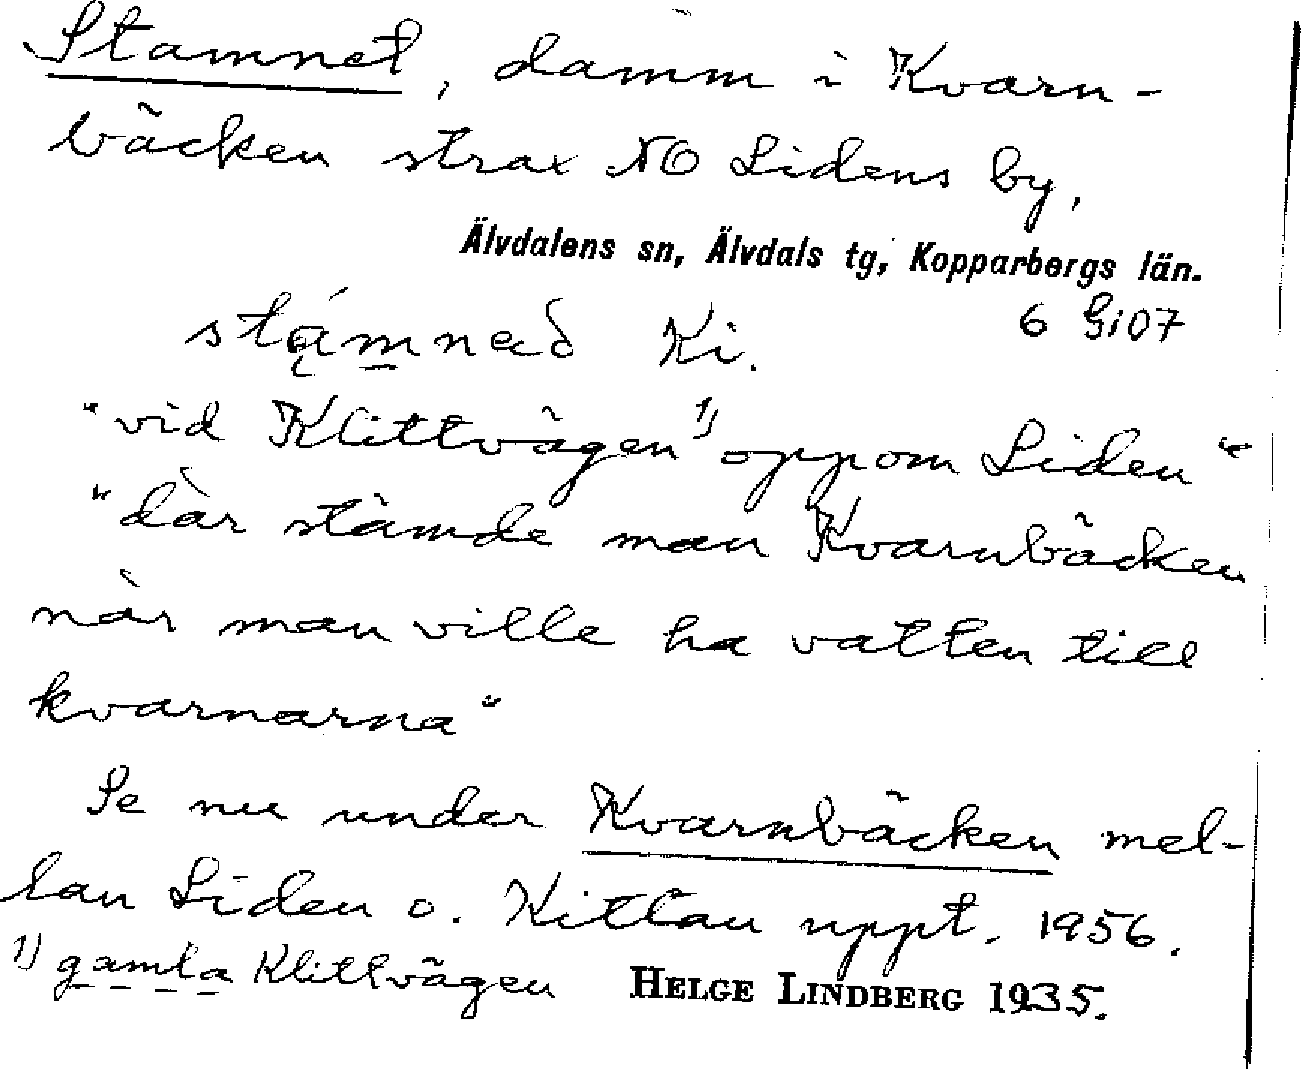 Stamnet, damm i Kvarn-
bäcken strax NO Lidens by,
Älvdalens sn, Älvdals tg, Kopparbergs län.
6 Gi07
Ki.
"vid Klittvägen ¹⁾ oppom Liden"
"där stämde man Kvarnbäcken
när man ville ha vatten till
kvarnarna"
Se nu under Kvarnbäcken mel-
lan Liden o. Kittlan uppt. 1956.
¹⁾ gamla Klittvägen HELGE LINDBERG 1935.